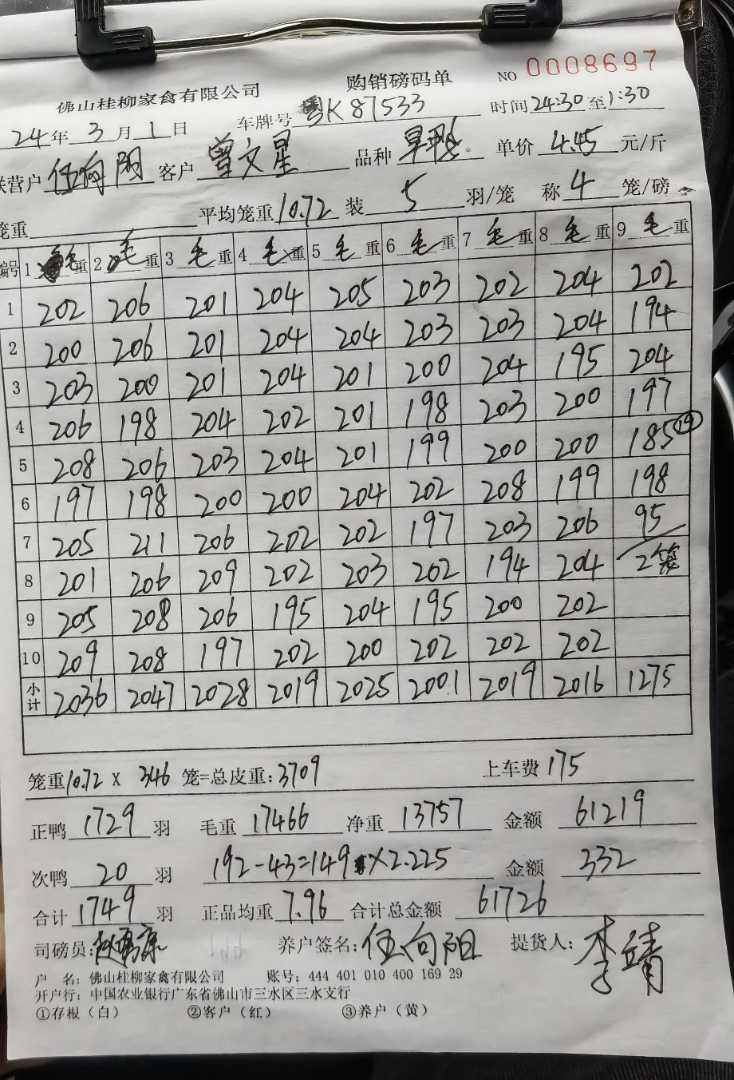 佛山桂柳家禽有限公司 购销磅码单 NO 0008697
24年3月1日 车牌号 粤K87533 时间24:30至1:30
联营户 伍向阳 客户 曾文星 品种 单价 4.45 元/斤
笼重 平均笼重10.72 装 5 羽/笼 称 4 笼/磅
编号 1 毛重 2 毛重 3 毛重 4 毛重 5 毛重 6 毛重 7 毛重 8 毛重 9 毛重
1 202 206 201 204 205 203 202 204 202
2 200 206 201 204 204 203 203 204 194
3 203 200 201 204 201 200 204 195 204
4 206 198 204 202 201 198 203 200 197
5 208 206 203 204 201 199 200 200 185 19
6 197 198 200 200 204 202 208 199 198
7 205 211 206 202 202 197 203 206 95
8 201 206 209 202 203 202 194 204 2笼
9 205 208 206 195 204 195 200 202
10 209 208 197 202 200 202 202 202
小计 2036 2047 2028 2019 2025 2001 2019 2016 1275
笼重10.72 X 346 笼=总皮重:3709 上车费 175
正鸭 1729 羽 毛重 17466 净重 13757 金额 61219
次鸭 20 羽 192-43=149 X2.225 金额 332
合计 1749 羽 正品均重 7.96 合计总金额 61726
司磅员: 养户签名: 伍向阳 提货人: 李靖
户 名: 佛山桂柳家禽有限公司 账号: 444 401 010 400 169 29
开户行: 中国农业银行广东省佛山市三水区三水支行
①存根（白） ②客户（红） ③养户（黄）